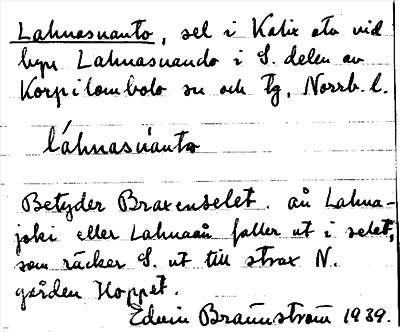 Lahnasuanto, sel i Kalix äta vid
byn Lahnasuando i S. delen av
Korpilombolo sn och tg, Norrb. l.
láhnasúanto
Betyder Braxenselet. ån Lahna-
joki eller Lahnaån faller ut i selet,
som räcker S. ut till strax N.
gården Hoppet.
Edvin Brännström 1939.